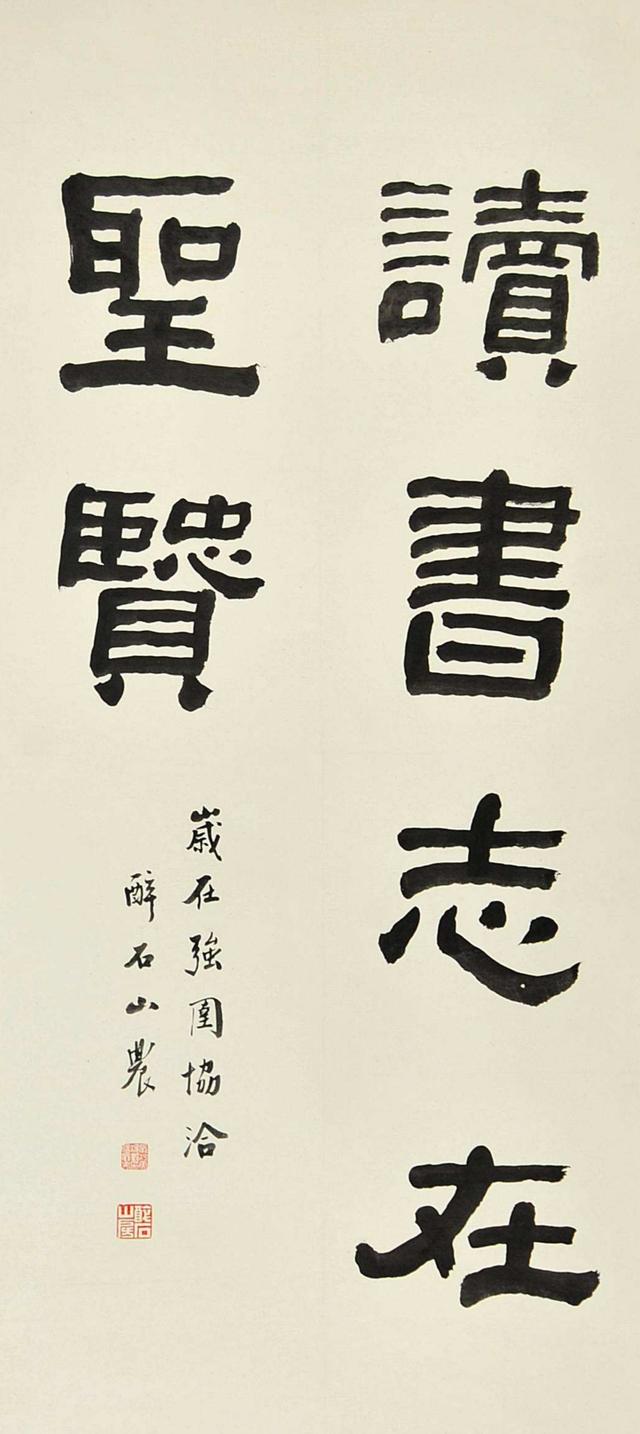 讀書志在
聖賢
歲在強圉協洽
醉石山農